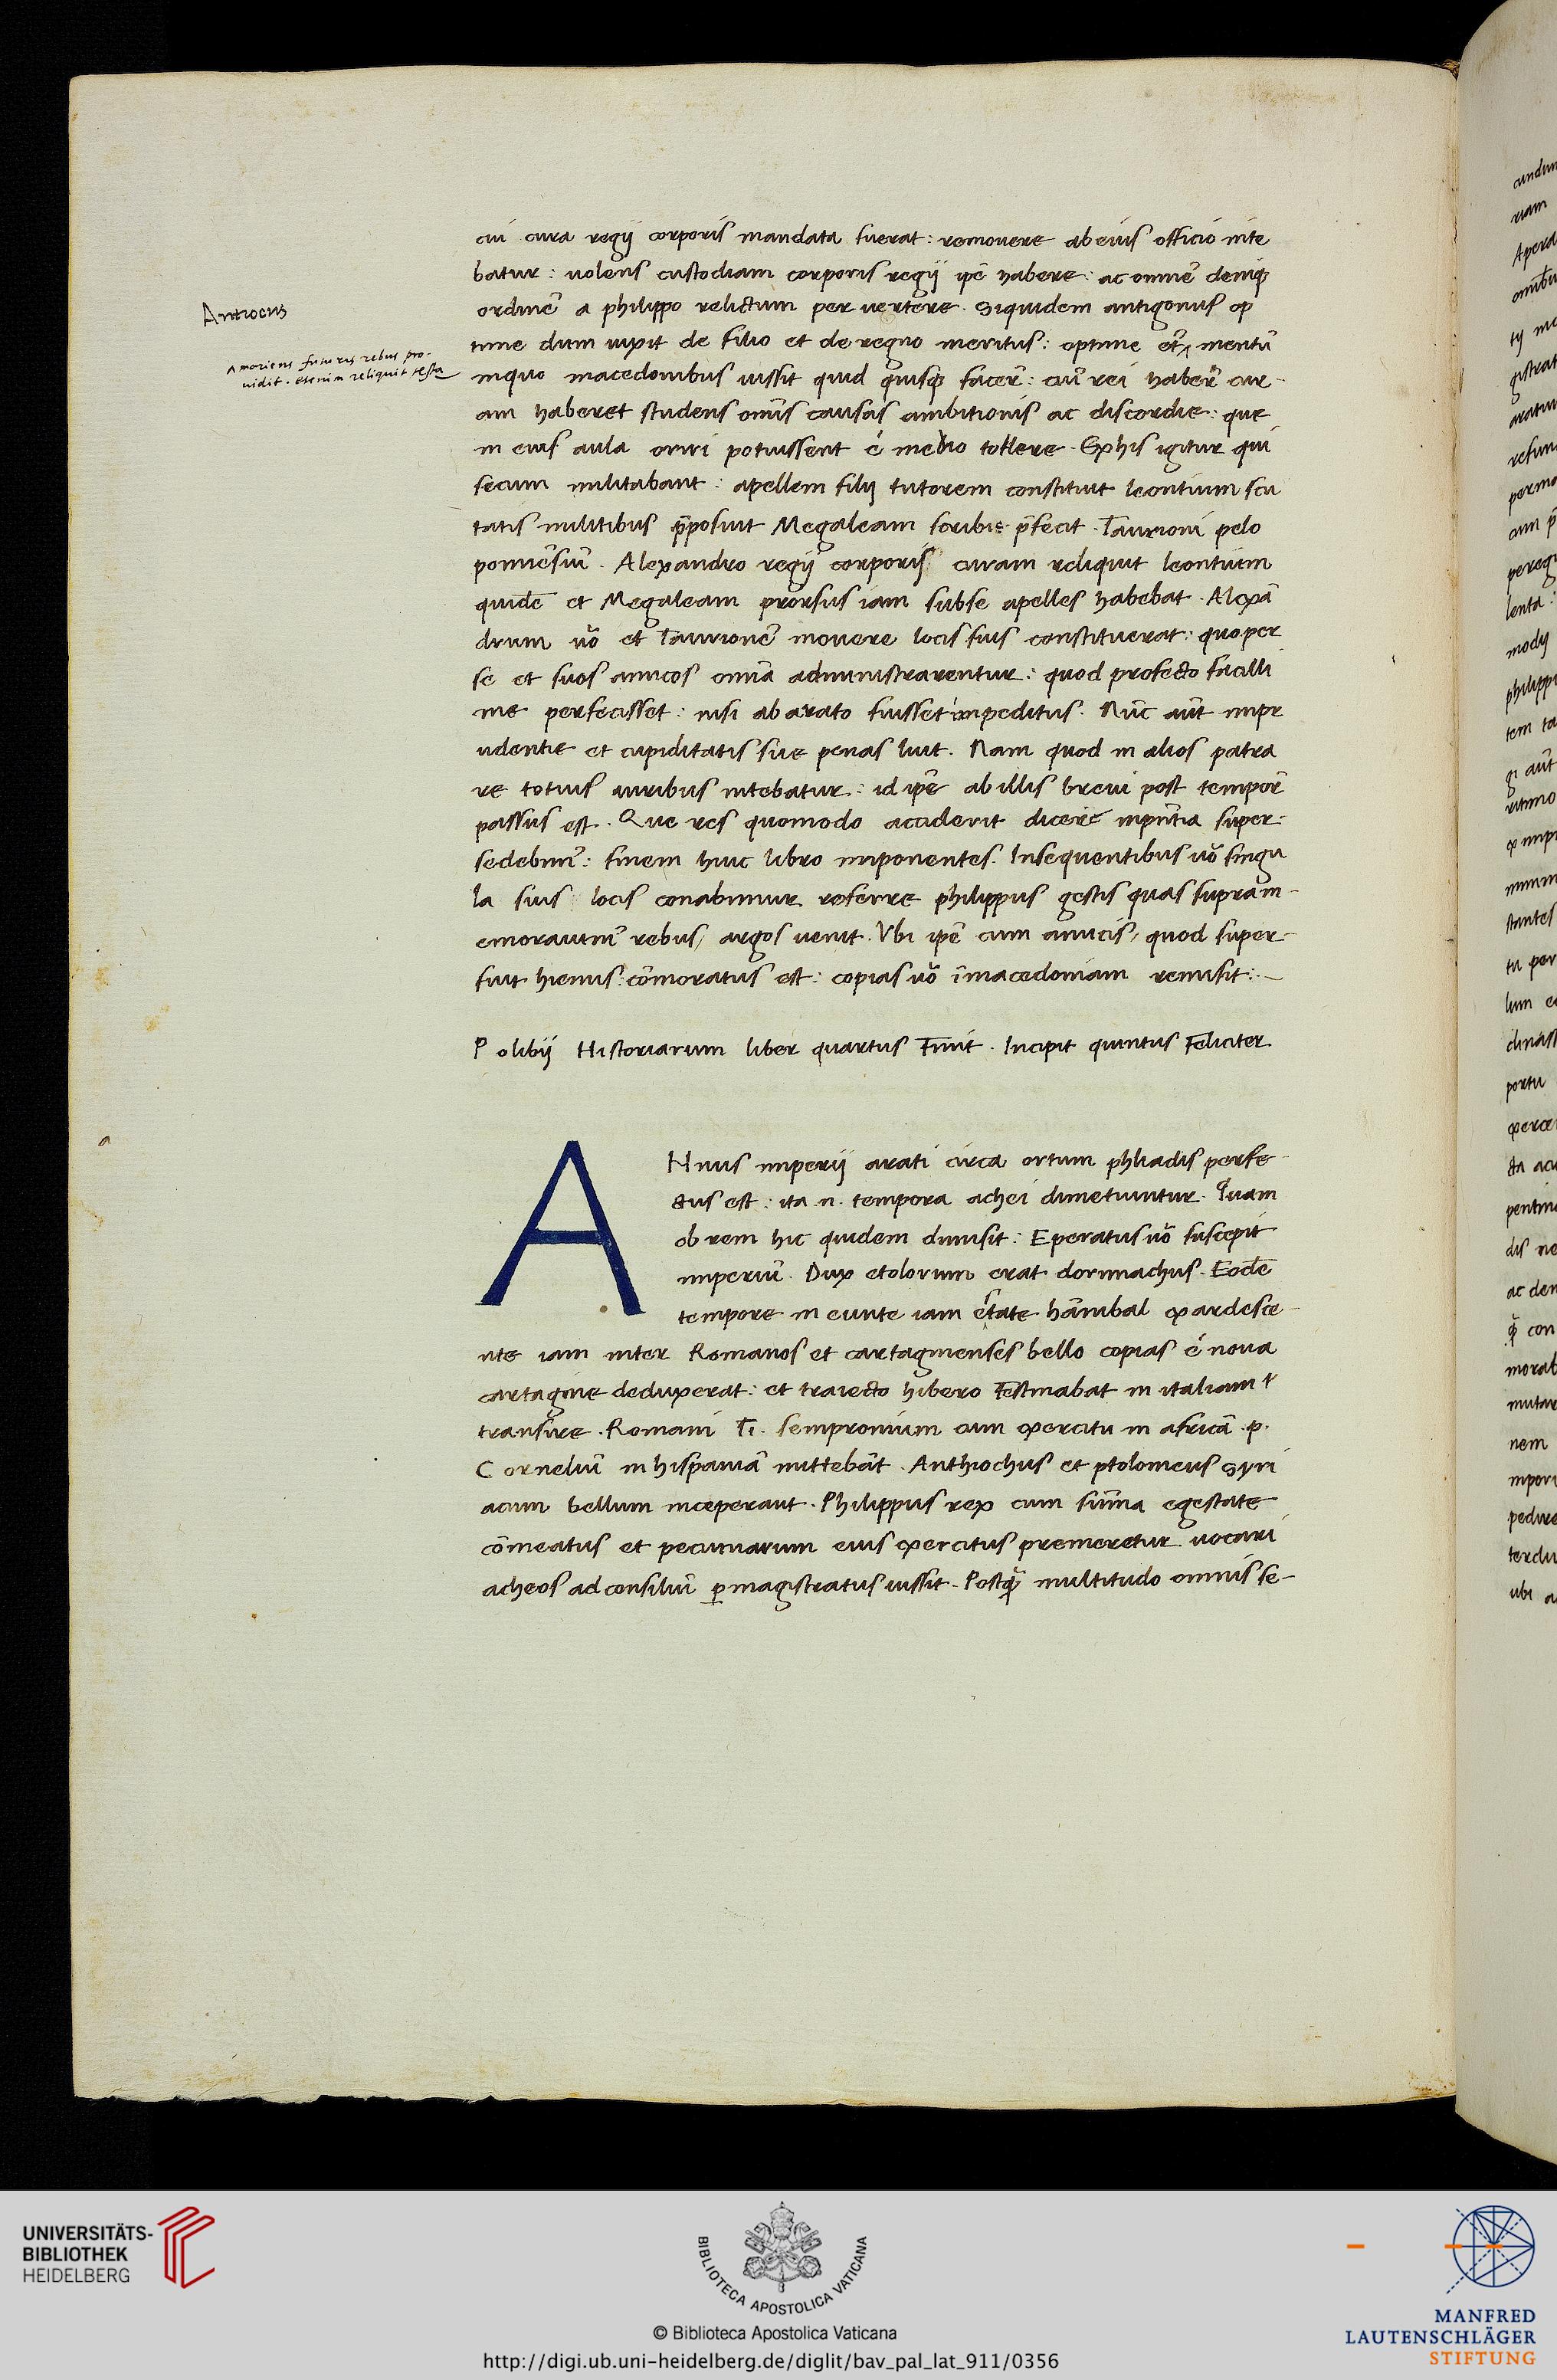 cui cura regij corporis mandata fuerat: remouere ab eius officio nite
batur: uolens custodiam corporis regij ipē habere: ac omnē deniq̧
ordinē a philippo relictum per uertere. Siquidem antigonus op
Antiocus
time dum uixit de filio et de regno meritus: optime et̄ ‸ mentū
‸ moriens futuris rebus pro-
uidit. etenim reliquit testa
inquo macedonibus iussit quid quisq̧ facer̄: cui᷒ rei haber̄ cur-
am haberet studens om̄s causas ambitionis ac discordie: que
in eius aula oriri potuissent é medio tollere. Ex his igitur qui
secum militabant: apellem filij tutorem constituit leontium scu
tatis militibus p̄posuit Megaleam scribis p̄fecit. Taurioni pelo
ponnēsiū. Alexandro regij corporis curam reliquit leontium
quidē et Megaleam prorsus iam subse apelles habebat. Alexā
drum uō et Taurionē mouere locis suis constituerat: quo per
se et suos amicos omīa administrarentur: quod profecto facilli
me perfecisset: nisi ab arato fuisset impeditus. Nūc aūt impr
udentie et cupiditatis sue penas luit. Nam quod in alios patra
re totius uiribus nitebatur: id ipē ab illis breui post tempor̄
passus est. Que res quomodo acciderit dicere inpn̄tia super:
sedebim᷒: finem huic libro imponentes. Insequentibus uō singu
la suis locis conabimur referre philippus gestis quas supram-
emorauim᷒ rebus, argos uenit. Vbi ipē cum amicis, quod super-
fuit hiemis: cōmoratus est: copias uō ī macedoniam remisit:-
Polibij Historiarum liber quartus Finit. Incipit quintus Feliciter
ANnus imperij arati circa ortum phliadis perfe-
ctus est: ita .n. tempora achei dimetiuntur. Quam
ob rem hic quidem dimisit: Eperatus uō suscepit
imperiū. Dux etolorum erat dorimachus. Eodē
tempore in eunte iam estate hānibal exardesce-
nte iam inter Romanos et cartaginenses bello copias é noua
cartagine deduxerat: et traiecto hibero Festinabat in italiam t
transire. Romani Ti. sempronium cum exercitu in africā .p.
Corneliū in hispaniā mittebāt. Anthiochus et ptolomeus Syri
acum bellum inceperant. Philippus rex cum sūma egestate
cōmeatus et pecuniarum eius exercitus premeretur uocari
acheos ad consiliū p̱ magistratus iussit. Postq̄ multitudo omnis se-
UNIVERSITÄTS-
BIBLIOTHEK
HEIDELBERG
BIBLIOTECA APOSTOLICA VATICANA
© Biblioteca Apostolica Vaticana
http://digi.ub.uni-heidelberg.de/diglit/bav_pal_lat_911/0356
MANFRED
LAUTENSCHLÄGER
STIFTUNG